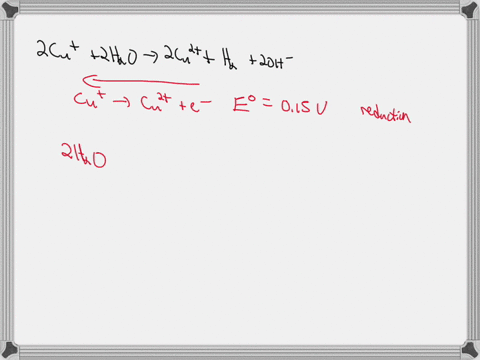 2Cu⁺ + 2H₂O → 2Cu²⁺ + H₂ + 2OH⁻
Cu⁺ → Cu²⁺ + e⁻ E° = 0.15 V reduction
2H₂O